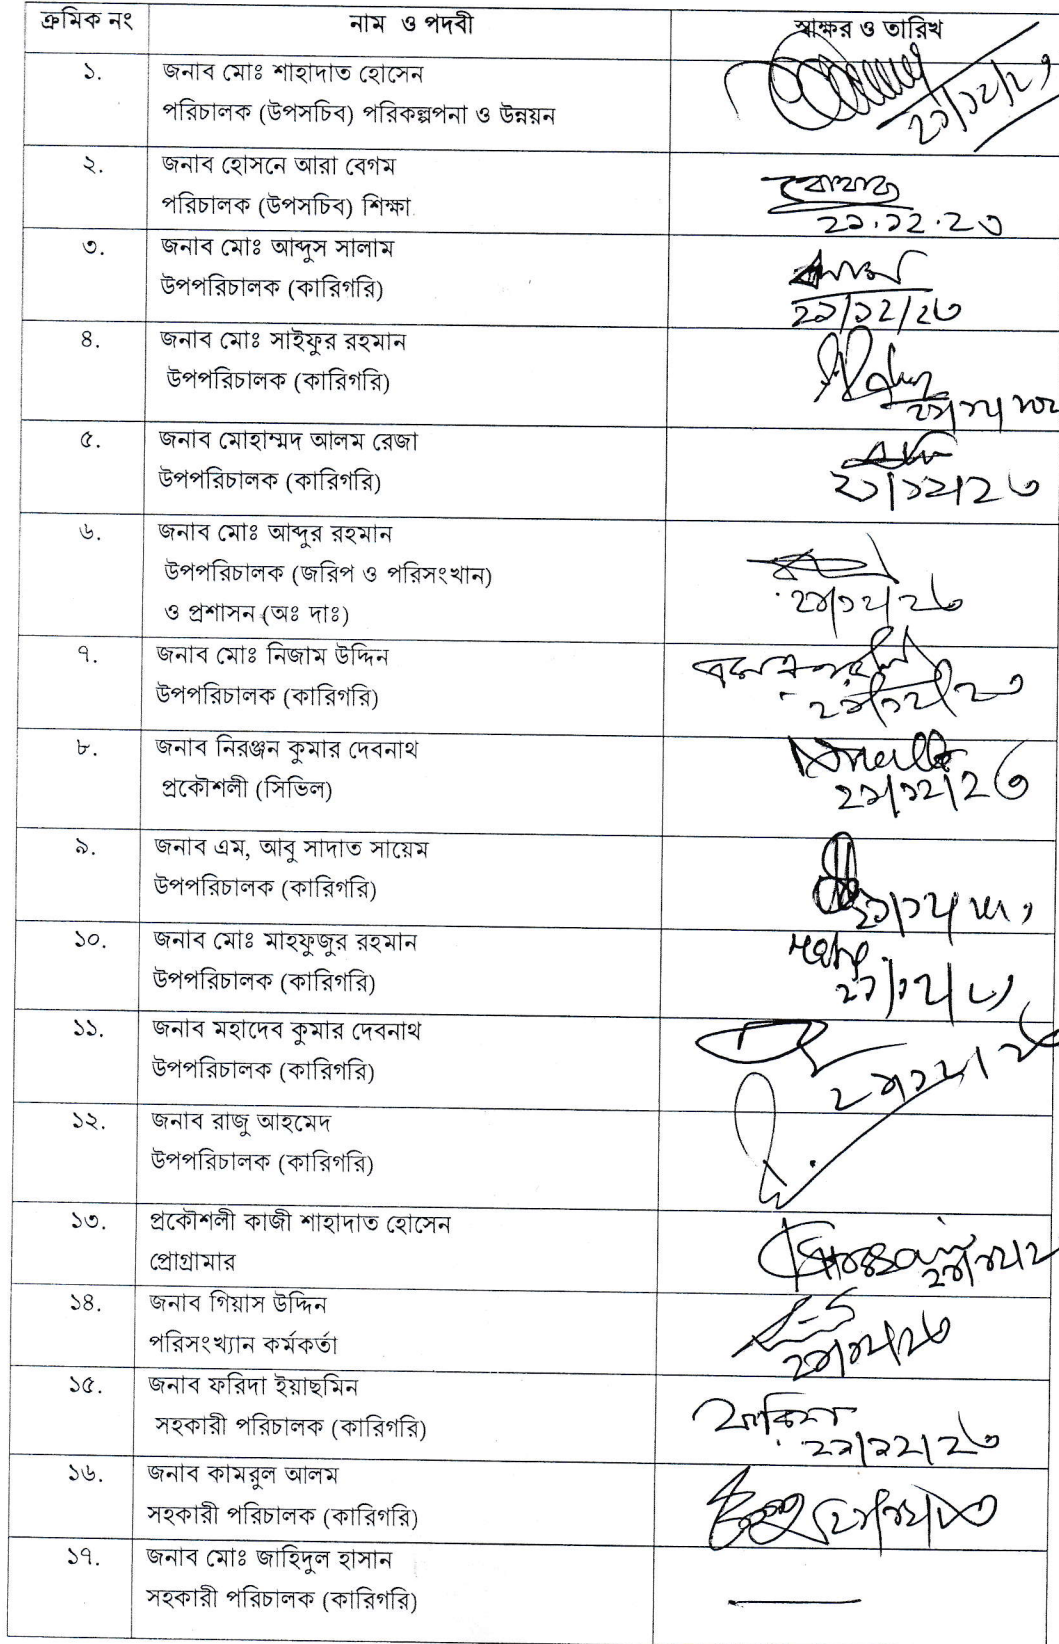 ক্রমিক নং নাম ও পদবী স্বাক্ষর ও তারিখ
১. জনাব মোঃ শাহাদাত হোসেন
পরিচালক (উপসচিব) পরিকল্পপনা ও উন্নয়ন
২১/১২/২৩
২. জনাব হোসনে আরা বেগম
পরিচালক (উপসচিব) শিক্ষা
২১.১২.২৩
৩. জনাব মোঃ আব্দুস সালাম
উপপরিচালক (কারিগরি)
২১/১২/২৩
৪. জনাব মোঃ সাইফুর রহমান
উপপরিচালক (কারিগরি)
৫. জনাব মোহাম্মদ আলম রেজা
উপপরিচালক (কারিগরি)
২১/১২/২৩
৬. জনাব মোঃ আব্দুর রহমান
উপপরিচালক (জরিপ ও পরিসংখান)
ও প্রশাসন (অঃ দাঃ)
২১/১২/২৩
৭. জনাব মোঃ নিজাম উদ্দিন
উপপরিচালক (কারিগরি)
২১/১২/২৩
৮. জনাব নিরঞ্জন কুমার দেবনাথ
প্রকৌশলী (সিভিল)
২১/১২/২৩
৯. জনাব এম, আবু সাদাত সায়েম
উপপরিচালক (কারিগরি)
১০. জনাব মোঃ মাহফুজুর রহমান
উপপরিচালক (কারিগরি)
১১. জনাব মহাদেব কুমার দেবনাথ
উপপরিচালক (কারিগরি)
১২. জনাব রাজু আহমেদ
উপপরিচালক (কারিগরি)
১৩. প্রকৌশলী কাজী শাহাদাত হোসেন
প্রোগ্রামার
১৪. জনাব গিয়াস উদ্দিন
পরিসংখ্যান কর্মকর্তা
২১/১২/২৩
১৫. জনাব ফরিদা ইয়াছমিন
সহকারী পরিচালক (কারিগরি)
২১/১২/২৩
১৬. জনাব কামরুল আলম
সহকারী পরিচালক (কারিগরি)
২১/১২/২৩
১৭. জনাব মোঃ জাহিদুল হাসান
সহকারী পরিচালক (কারিগরি)